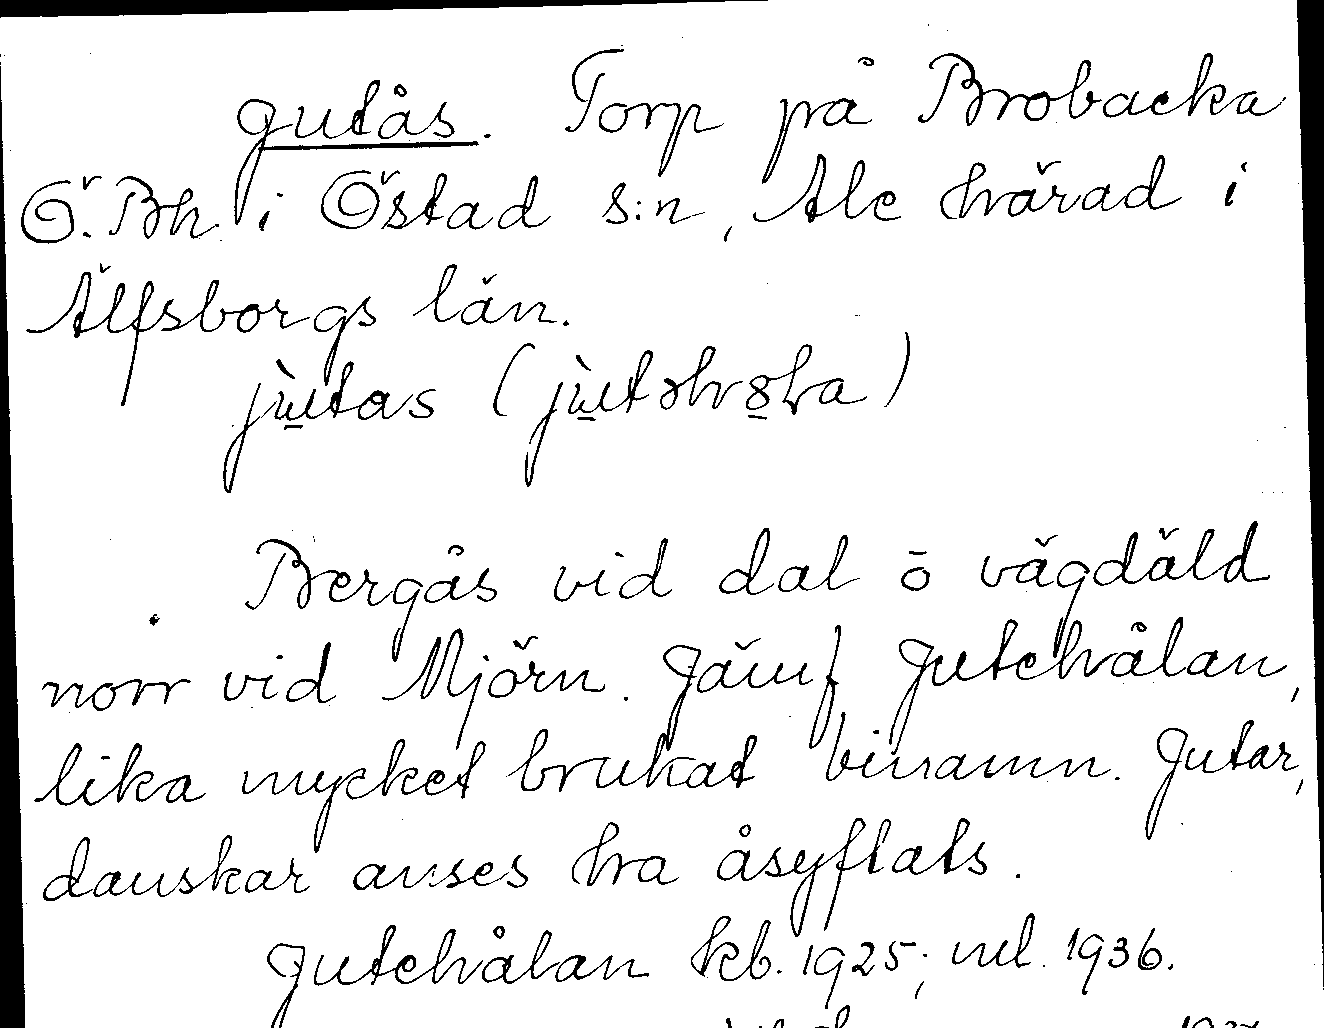 Jutås. Torp på Brobacka
Ö. Bh. i Östad s:n, Ale härad i
Älfsborgs län.
Bergås vid dal o vägdäld
norr vid Mjörn. Jämf Jutehålan,
lika mycket brukat binamn. Jutar,
danskar anses ha åsyftats.
Jutehålan kb. 1925; ml. 1936.